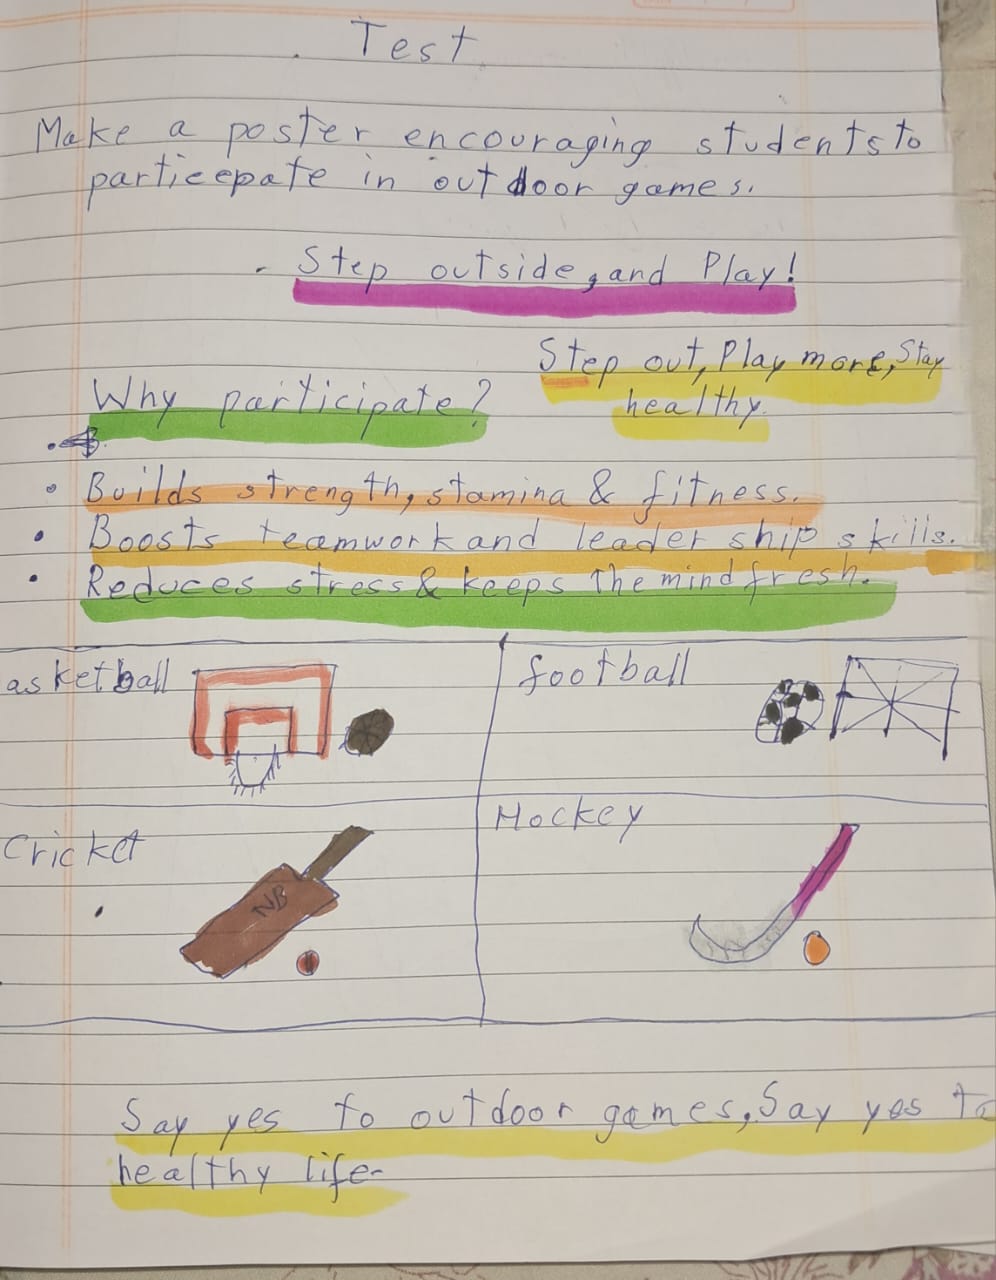 Test
Make a poster encouraging students to
particepate in outdoor games.
Step outside, and Play!
Step out, Play more, Stay
healthy.
Why participate?
Builds strength, stamina & fitness.
Boosts teamwork and leader ship skills.
Reduces stress & keeps the mind fresh.
asketball
football
Cricket
NB
Hockey
Say yes to outdoor games, Say yes to
healthy life-